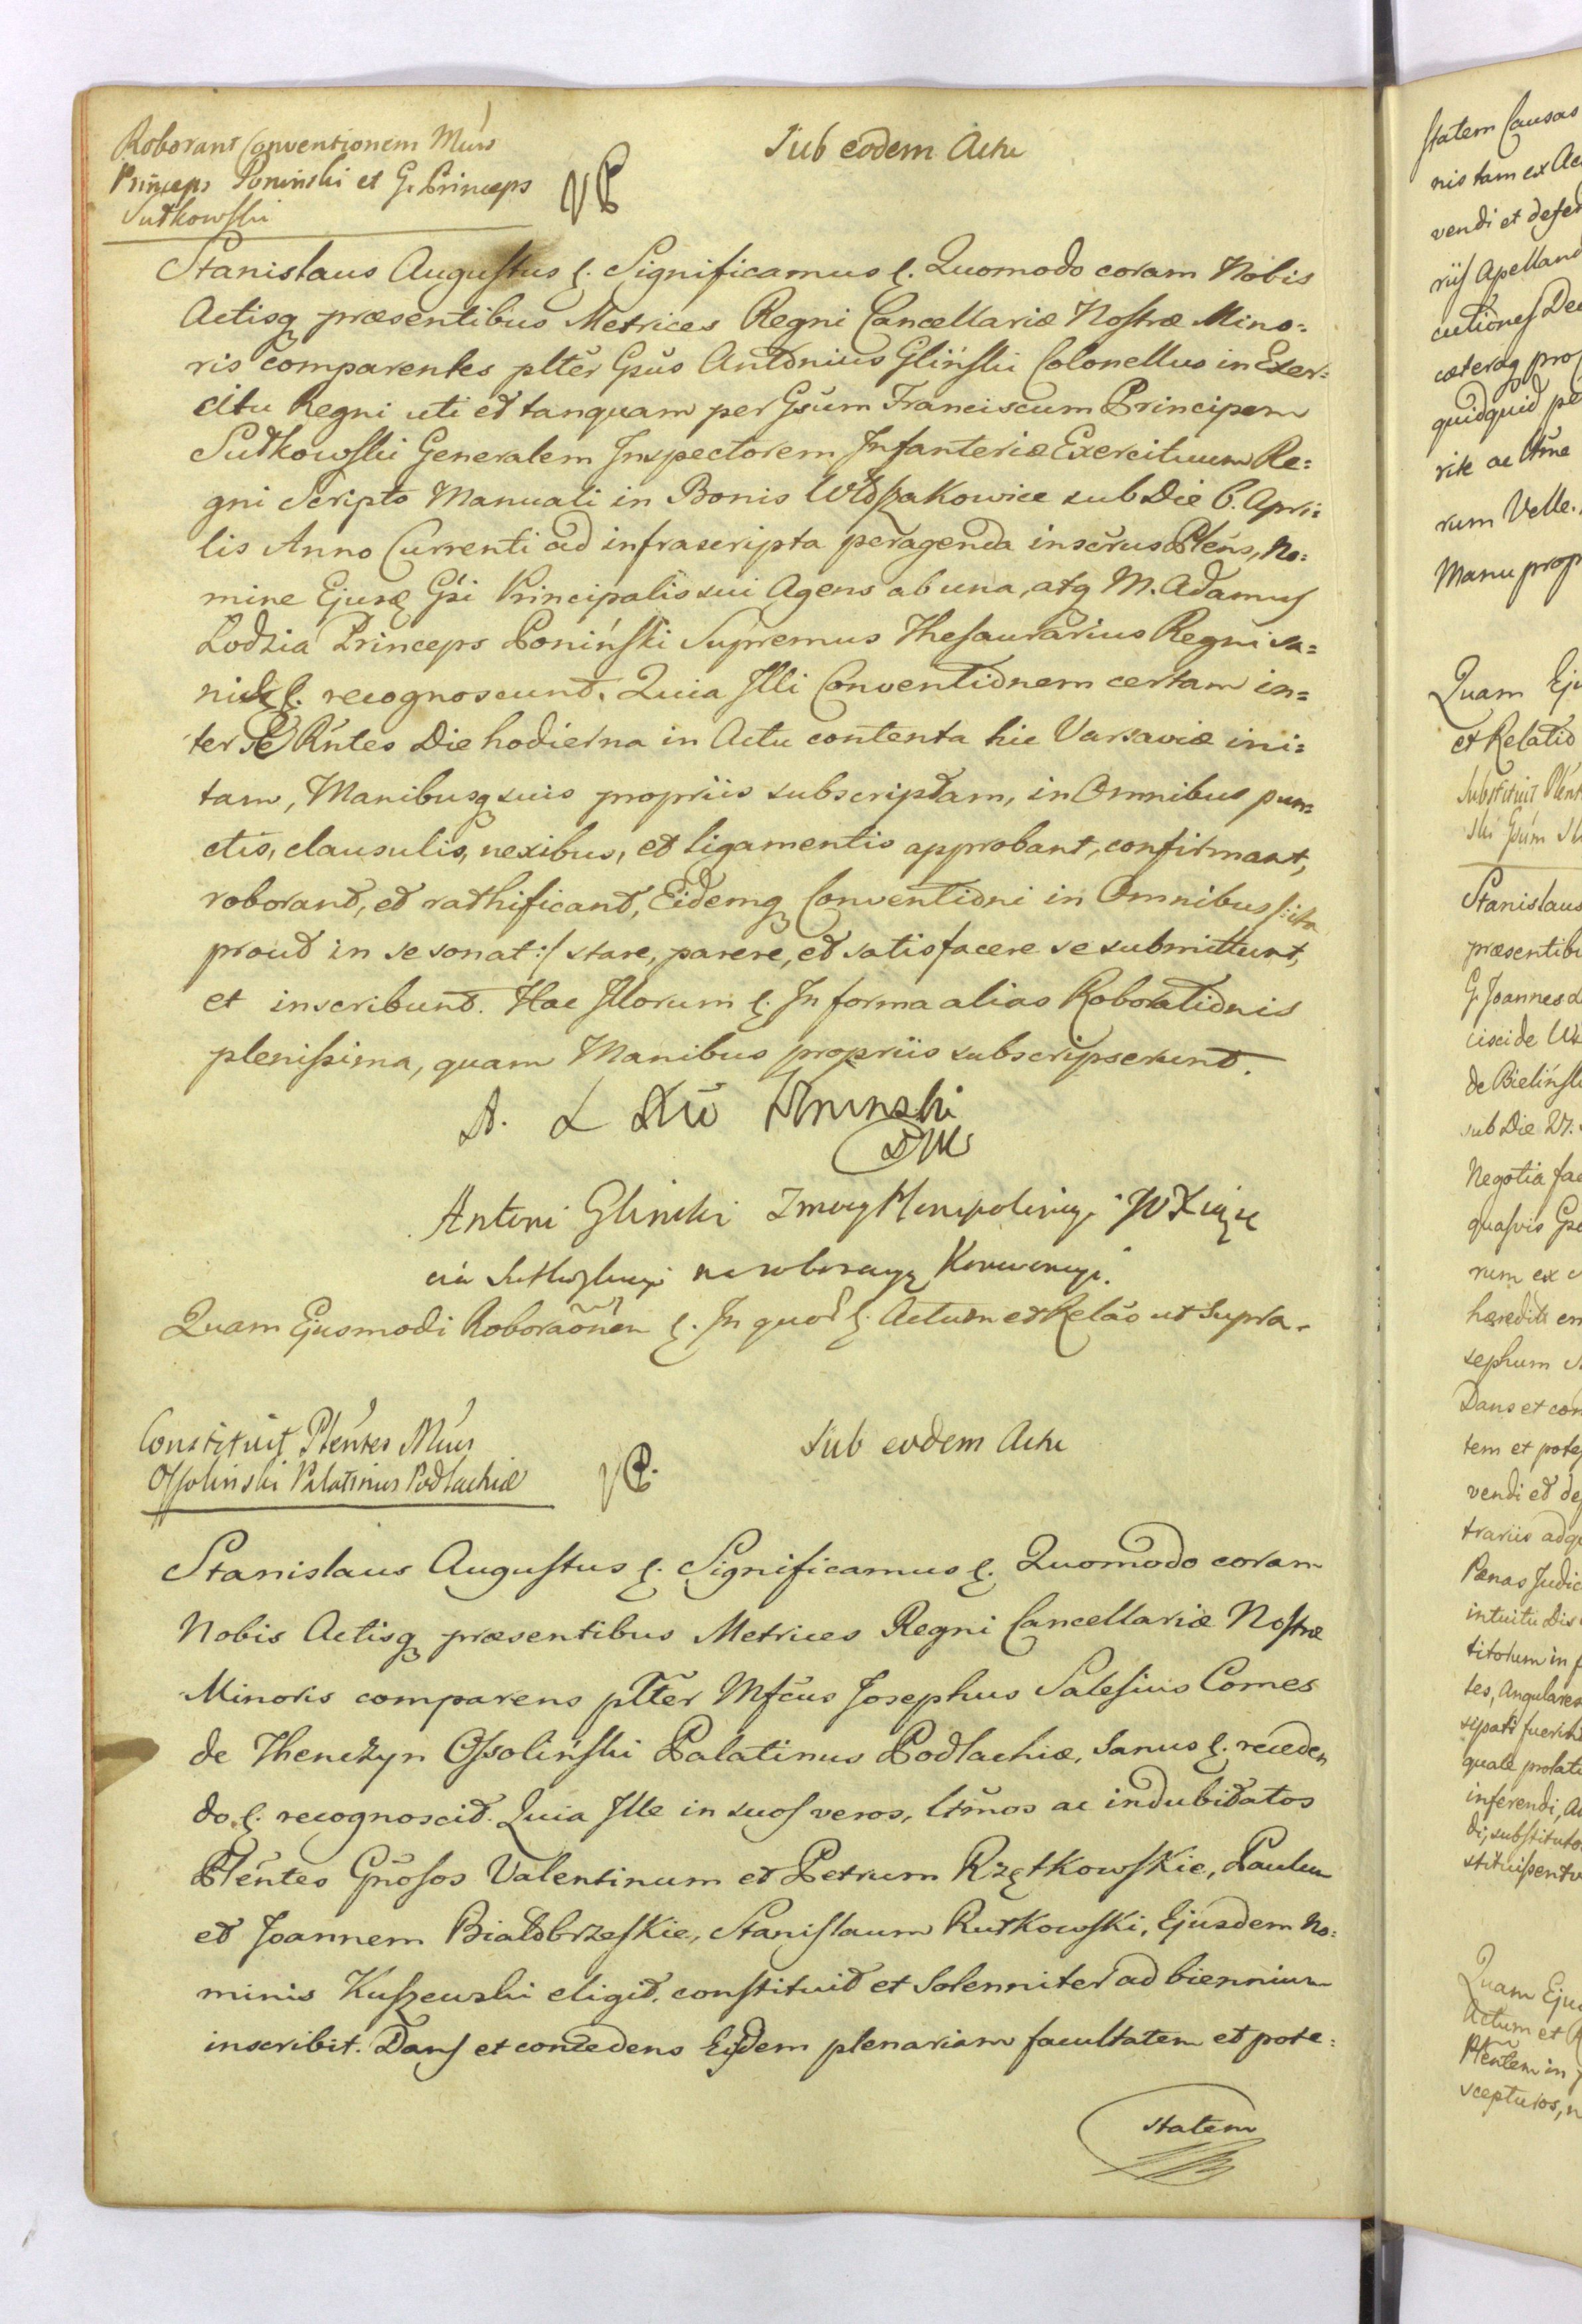 Roborant Conventionem Mús
Princeps Poniński et G. Princeps
Sułkowski
Sub eodem Actu
Stanislaus Augustus ꝛ. Significamus ꝛ. Quomodo coram Nobis
Actisq præsentibus Metrices Regni Cancellariæ Nostræ Mino=
ris comparentes plter Gsus Antonius Gliński Colonellus in Exer=
citu Regni uti et tanquam per Gsum Franciscum Principem
Sułkowski Generalem Inspectorem Infanteriæ Exercituum Re=
gni Scripto Manuali in Bonis Włoszakowice sub Die 6. Apri=
lis Anno Currenti ad infrascripta peragenda inscrus Plens, No=
mine Ejusq Gsi Principalis sui Agens ab una, atq M. Adamus
Lodzia Princeps Poniński Supremus Thesaurarius Regni sa=
ni ꝛ. recognoscunt. Quia Illi Conventionem certam in=
ter se Rntes Die hodierna in Actu contenta hic Varsaviæ ini=
tam, Manibusq suis propriis subscriptam, in Omnibus pun=
ctis, clausulis, nexibus, et ligamentis approbant, confirmant,
roborant, et rathificant, Eidemq Conventioni in Omnibus /: ita
prout in se sonat :/ stare, parere, et satisfacere se submittunt,
et inscribunt. Hac Illorum ꝛ. In forma alias Roborationis
plenissima, quam Manibus propriis subscripserunt.
A. L Xże Poninski
Antoni Glinski z mocy Plenipotencyi JO Xiążę
cia Sułkowskiego na roboracyą Konwencyi
Quam Ejusmodi Roboraõnen ꝛ. In quor ꝛ. Actum et Relão ut Supra.
Constituit Pléntes Mús
Ossolinski Palatinus Podlachiæ
Sub eodem Actu
Stanislaus Augustus ꝛ. Significamus ꝛ. Quomodo coram
Nobis Actisq præsentibus Metrices Regni Cancellariæ Nostræ
Minoris comparens plter Mfcus Josephus Salesius Comes
de Thenczyn Ossoliński Palatinus Podlachiæ, Sanus ꝛ. receden
do. ꝛ. recognoscit. Quia Ille in suos veros, ltmos ac indubitatos
Pléntes Gnosos Valentinum et Petrum Rzętkowskie, Paulum
et Joannem Białobrzeskie, Stanislaum Rutkowski, Ejusdem No=
minis Kuszewski eligit, constituit et Solenniter ad biennium
inscribit. Dans et concedens Eisdem plenariam facultatem et pote=
statem
statem Causas
nis tam ex Ac
vendi et defen
riis Apelland
cutiones De
cæteraq pro
quidquid pe
rite ac ltme
rum Velle.
Manu prop
Quam Eju
et Relatio
Substituit Plént
ski Gsum
Stanislaus
præsentibu
G. Joannes
de Bielińsk
sub Die 27.
Negotia fa
quasvis Gs
rum ex
sephum
Dans et con
tem et pote
vendi et de
trariis adq
Pænas Judic
intuitu Dis
titorum in
tes, Angulares
sipati fuerint
quale prolati
inferendi, A
di, substituto
stituissent
Quam Eju
Actum et R
Pléntem in
sceptusos, n